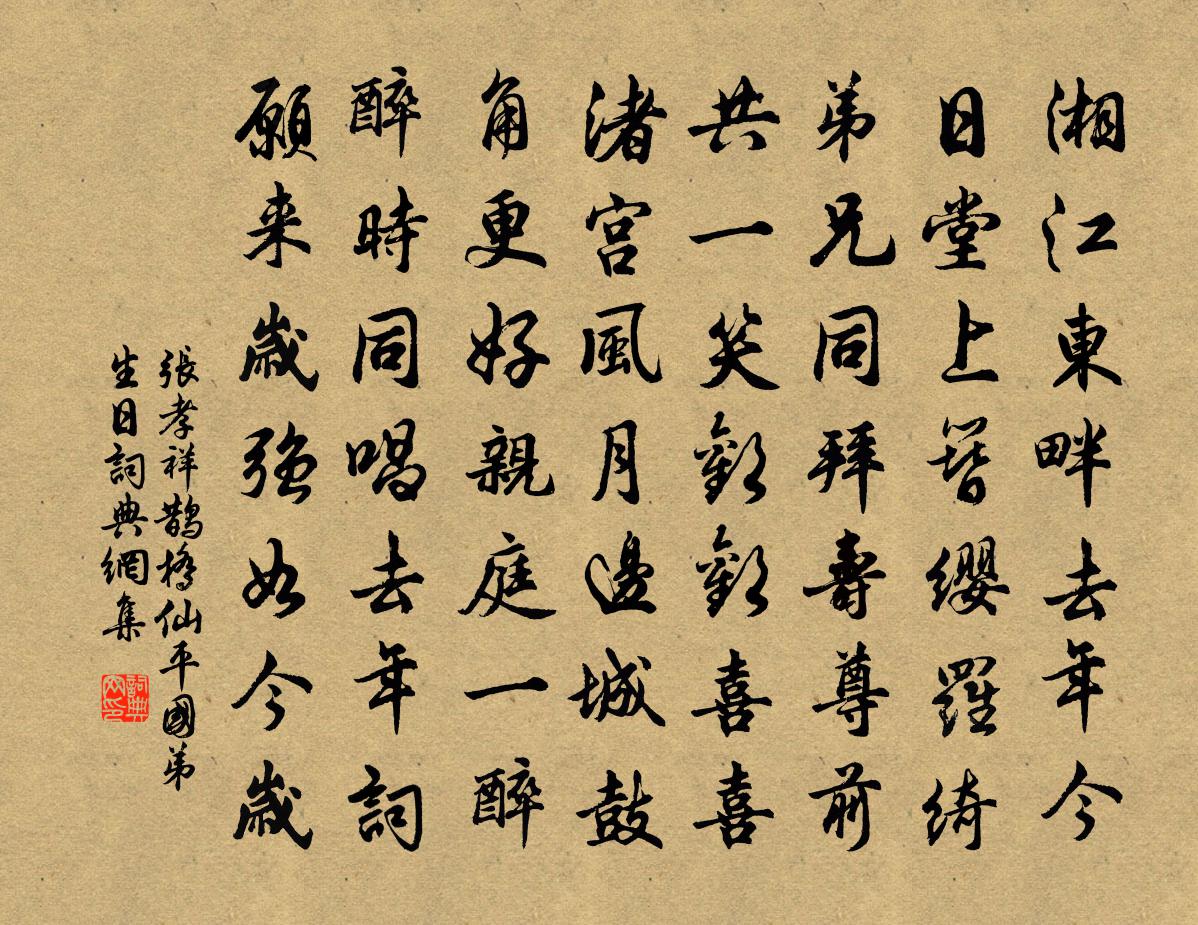 湘江東畔去年今
日堂上簪纓羅綺
弟兄同拜壽尊前
共一笑歡歡喜喜
渚宮風月邊城鼓
角更好親庭一醉
醉時同唱去年詞
願来歲強如今歲
張孝祥鵲橋仙平國弟
生日詞典網集
詞典
网印